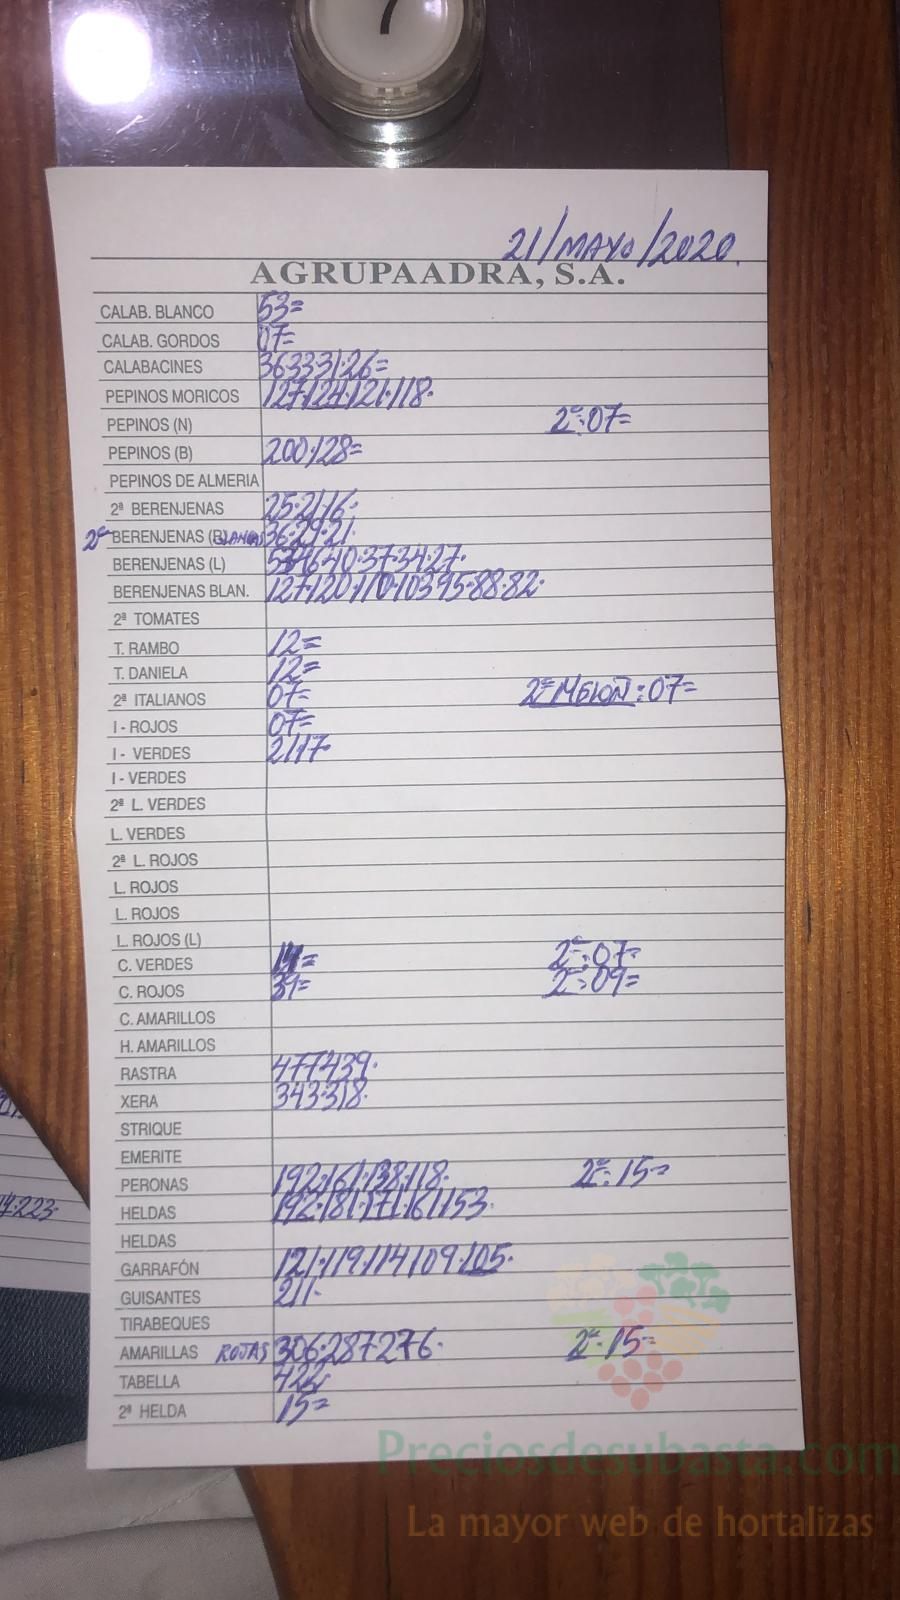 21/MAYO/2020.
AGRUPAADRA, S.A.
CALAB. BLANCO 53=
CALAB. GORDOS 07=
CALABACINES 36333126=
PEPINOS MORICOS 127·124·121·118·
PEPINOS (N) 2ª:07=
PEPINOS (B) 200·128=
PEPINOS DE ALMERIA
2ª BERENJENAS 25·21·16·
2ª BERENJENAS (BLANCAS) 36·29·21·
BERENJENAS (L) 40·37·34·27·
BERENJENAS BLAN. 127·120·110·103·95·88·82·
2ª TOMATES
T. RAMBO 12=
T. DANIELA 12=
2ª ITALIANOS 07= 2ª MELON: 07=
I - ROJOS 07=
I - VERDES 21·17·
I - VERDES
2ª L. VERDES
L. VERDES
2ª L. ROJOS
L. ROJOS
L. ROJOS
L. ROJOS (L)
C. VERDES 2ª:07=
C. ROJOS 39= 2ª:09=
C. AMARILLOS
H. AMARILLOS
RASTRA 477·439·
XERA 343·318·
STRIQUE
EMERITE
PERONAS 192·161·138·118· 2ª: 15=
HELDAS 192·181·171·161·153·
HELDAS
GARRAFÓN 121·119·114·109·105·
GUISANTES 211·
TIRABEQUES
AMARILLAS ROJAS 306·287·276· 2ª·15=
TABELLA 422·
2ª HELDA 15=
223·
Preciosdesubasta.com
La mayor web de hortalizas